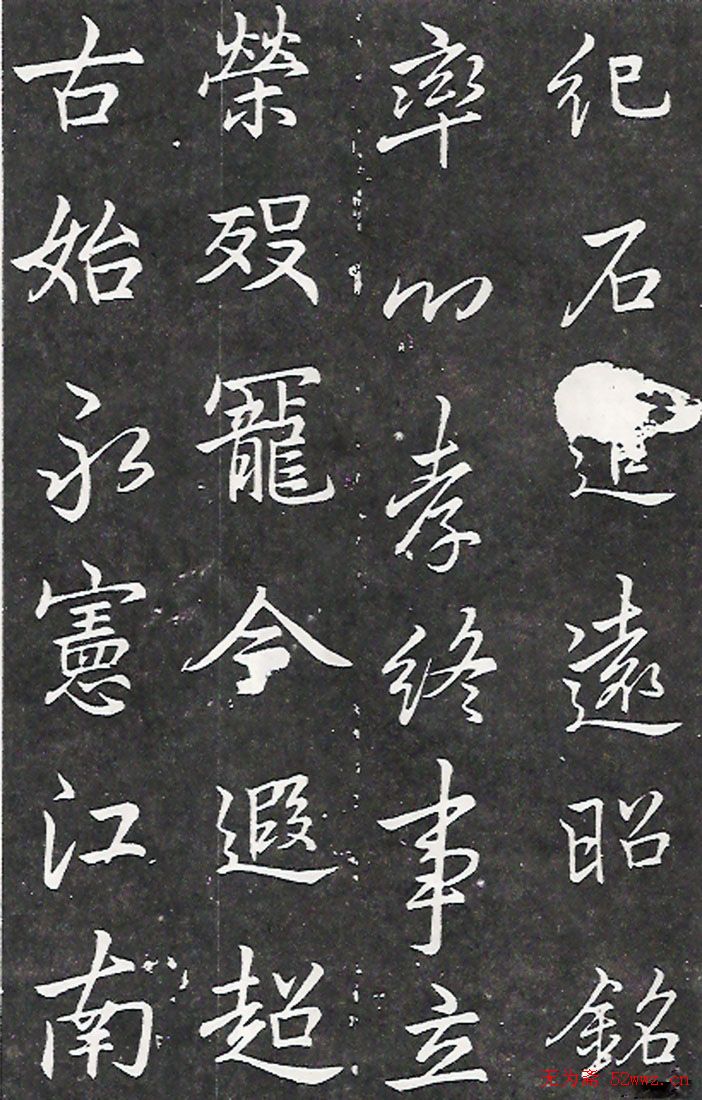 紀石追遠昭銘
率以孝終事立
榮歿寵令遐超
古始永憲江南
无为斋 52wwz.cn